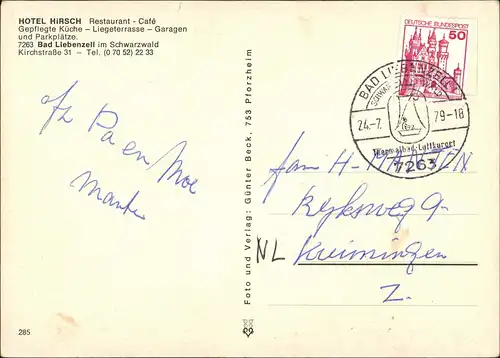 HOTEL HiRSCH Restaurant - Café
Gepflegte Küche – Liegeterrasse – Garagen
und Parkplätze.
7263 Bad Liebenzell im Schwarzwald
Kirchstraße 31 – Tel. (0 70 52) 22 33
Pa en Moe
285
Foto und Verlag: Günter Beck, 753 Pforzheim
DEUTSCHE BUNDESPOST
50
BAD LIEBENZELL
24.-7. 79-18
Thermalbad-Luftkurort
7263
fam H-
9
NL Kruiningen
Z.